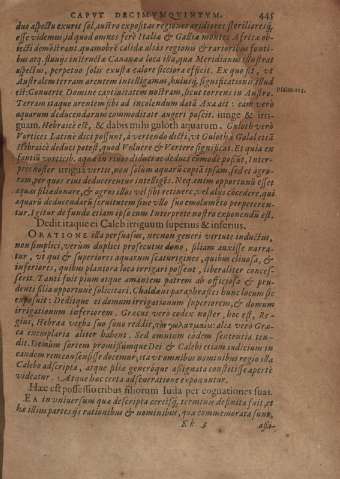 CAPVT DECIMVMQVINTVM. 445
duo aspectu exurit sol, austro expositas regiones aridiores sterilioresq;
esse videmus, id quod omnes ferè Italiæ & Galliæ montes Africæ ob-
iecti demonstrant. quamobrē calida aliàs regionis & rarioribus fonti-
bus atq; fluuijs instructa Cananæa loca illa, quæ Meridianus illustrat
aspectus, perpetuo solis exusta calore sicciora efficit. Ex quo fit, vt
australem terram arentem intelligamus, huiusq; significationis illud
est: Conuerte Domine captiuitatem nostram, sicut torrens in Austro.
Terram itaque arentem sibi ad incolendum datā Axa ait: eam verò
aquarum deducendarum commoditate augeri poscit. iunge & irri-
guam. Hebraicè est, & dabis mihi guloth aquarum. Guloth verò
Vortices Latinè dici possunt, à vertendo dicti, vt Guloth à Galal est à
Hebraicè deduci potest, quod Voluere & Vertere significat. Et quia ex
fontiū vorticib. aquæ in riuos diductæ deduci commodè possūt, Inter-
pres noster irriguā vertit, non solum aquarū copiā ipsam, sed et agro-
rum, per quos riui deducerentur intelligēs. Neq; enim opportunū esset
aquas filiæ donare, & agros illos vel sibi retinere, vel alijs cōcedere, qui
aquarū deducendarū seruitutem sine vllo suo emolumēto perpeteren-
tur. Igitur de fundo etiam ipso cum Interprete nostro exponendū est.
Dedit itaque ei Caleb irriguum superius & inferius.
ORATIONE illa persuasus, necnon generi virtute inductus,
non simplici, verùm duplici prosecutus dono, filiam auxisse narra-
tur, vt qui & superiores aquarum scaturigines, quibus cliuosa, &
inferiores, quibus planiora loca irrigari possent, liberaliter conces-
serit. Tanti fuit pium atque amantem patrem ab officiosa & pru-
denti filia opportunè solicitari. Chaldæus paraphrastes hunc locum sic
exposuit: Deditque ei domum irrigationum superiorem, & domum
irrigationum inferiorem. Græcus verò codex noster, hoc est, Re-
gius, Hebræa verba suo sono reddit, alia verò Græ-
ca exemplaria aliter habent. Sed omnium eodem sententia ten-
dit. Denique sortem promissionemque Dei & Calebi etiam iudicium in
eandem rem consensisse docemur, ita vt omnibus nominibus regio illa
Calebo adscripta, atque filiæ generoque assignata constitisse apertè
videatur. Atque hæc certa adsciuratione exponuntur.
Hæc est possessio tribus filiorum Iuda per cognationes suas.
EA in vniuersum quæ descripta est sors, terminis definita fuit, et
hæ illius partes ijs rationibus & nominibus, quæ commemorata sunt,
Kk 3